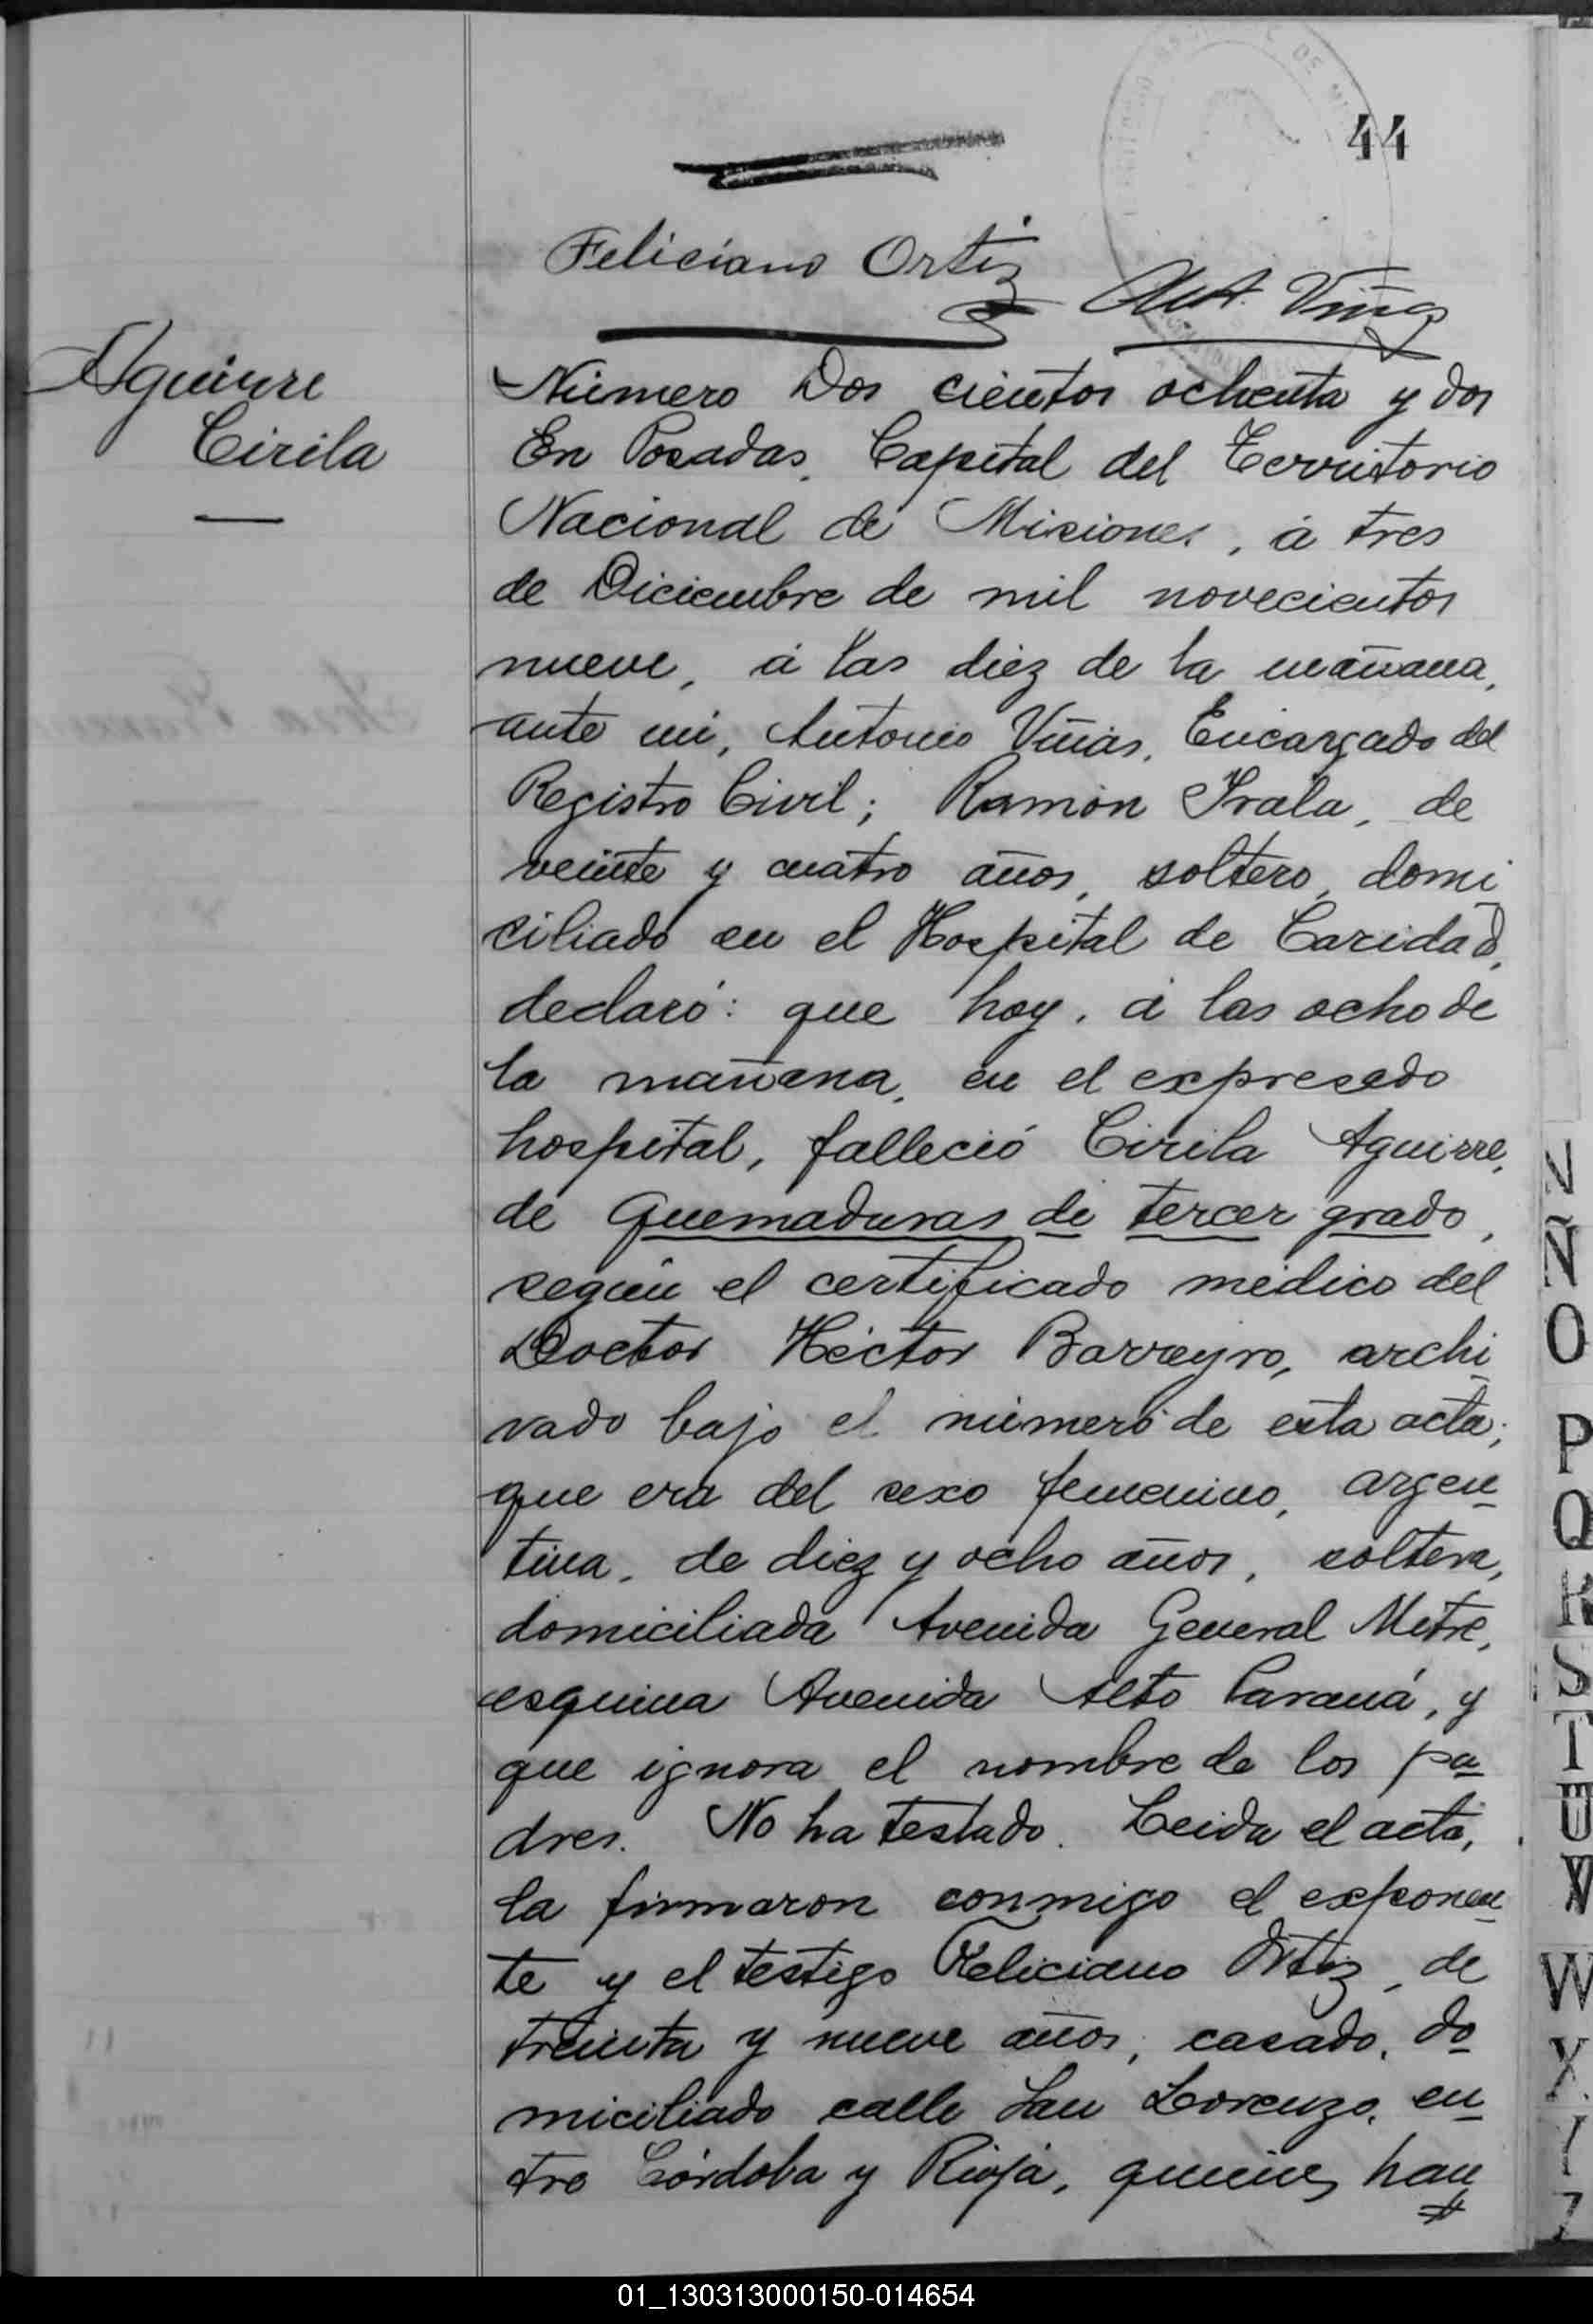 44
Feliciano Ortiz
Ant. Viñas
Aguirre
Cirila
Número Dos cientos ochenta y dos
En Posadas, Capital del Territorio
Nacional de Misiones, á tres
de Diciembre de mil novecientos
nueve, á las diez de la mañana,
ante mi, Antonio Viñas, Encargado del
Registro Civil; Ramón Irala, de
veinte y cuatro años, soltero, domi
ciliado en el Hospital de Caridad,
declaró: que hoy, á las ocho de
la mañana, en el expresado
hospital, falleció Cirila Aguirre,
de quemaduras de tercer grado,
según el certificado médico del
Doctor Héctor Barreyro, archi
vado bajo el número de esta acta;
que era del sexo femenino, argen
tina, de diez y ocho años, soltera,
domiciliada Avenida General Mitre,
esquina Avenida Alto Paraná, y
que ignora el nombre de los pa
dres. No ha testado. Leida el acta,
la firmaron conmigo el exponen
te y el testigo Feliciano Ortiz, de
treinta y nueve años, casado, do
miciliado calle San Lorenzo, en
tre Córdoba y Rioja, quienes han
N
Ñ
O
P
Q
R
S
T
U
V
W
X
Y
Z
01_130313000150-014654